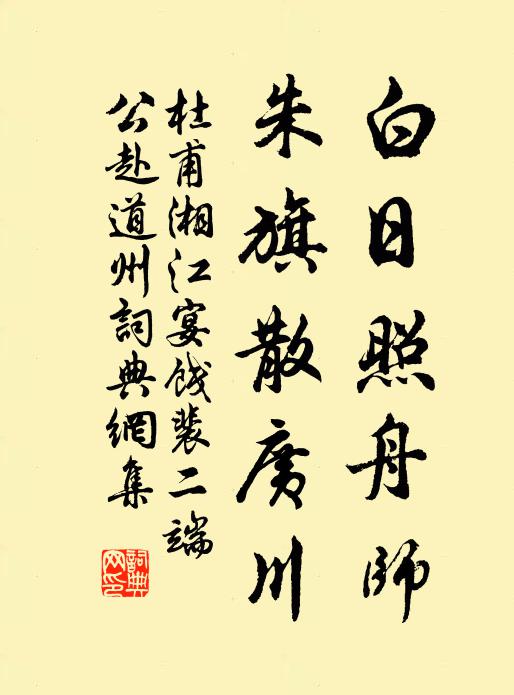 白日照舟師
朱旗散廣川
杜甫湘江宴餞裴二端
公赴道州詞典網集
詞典網印